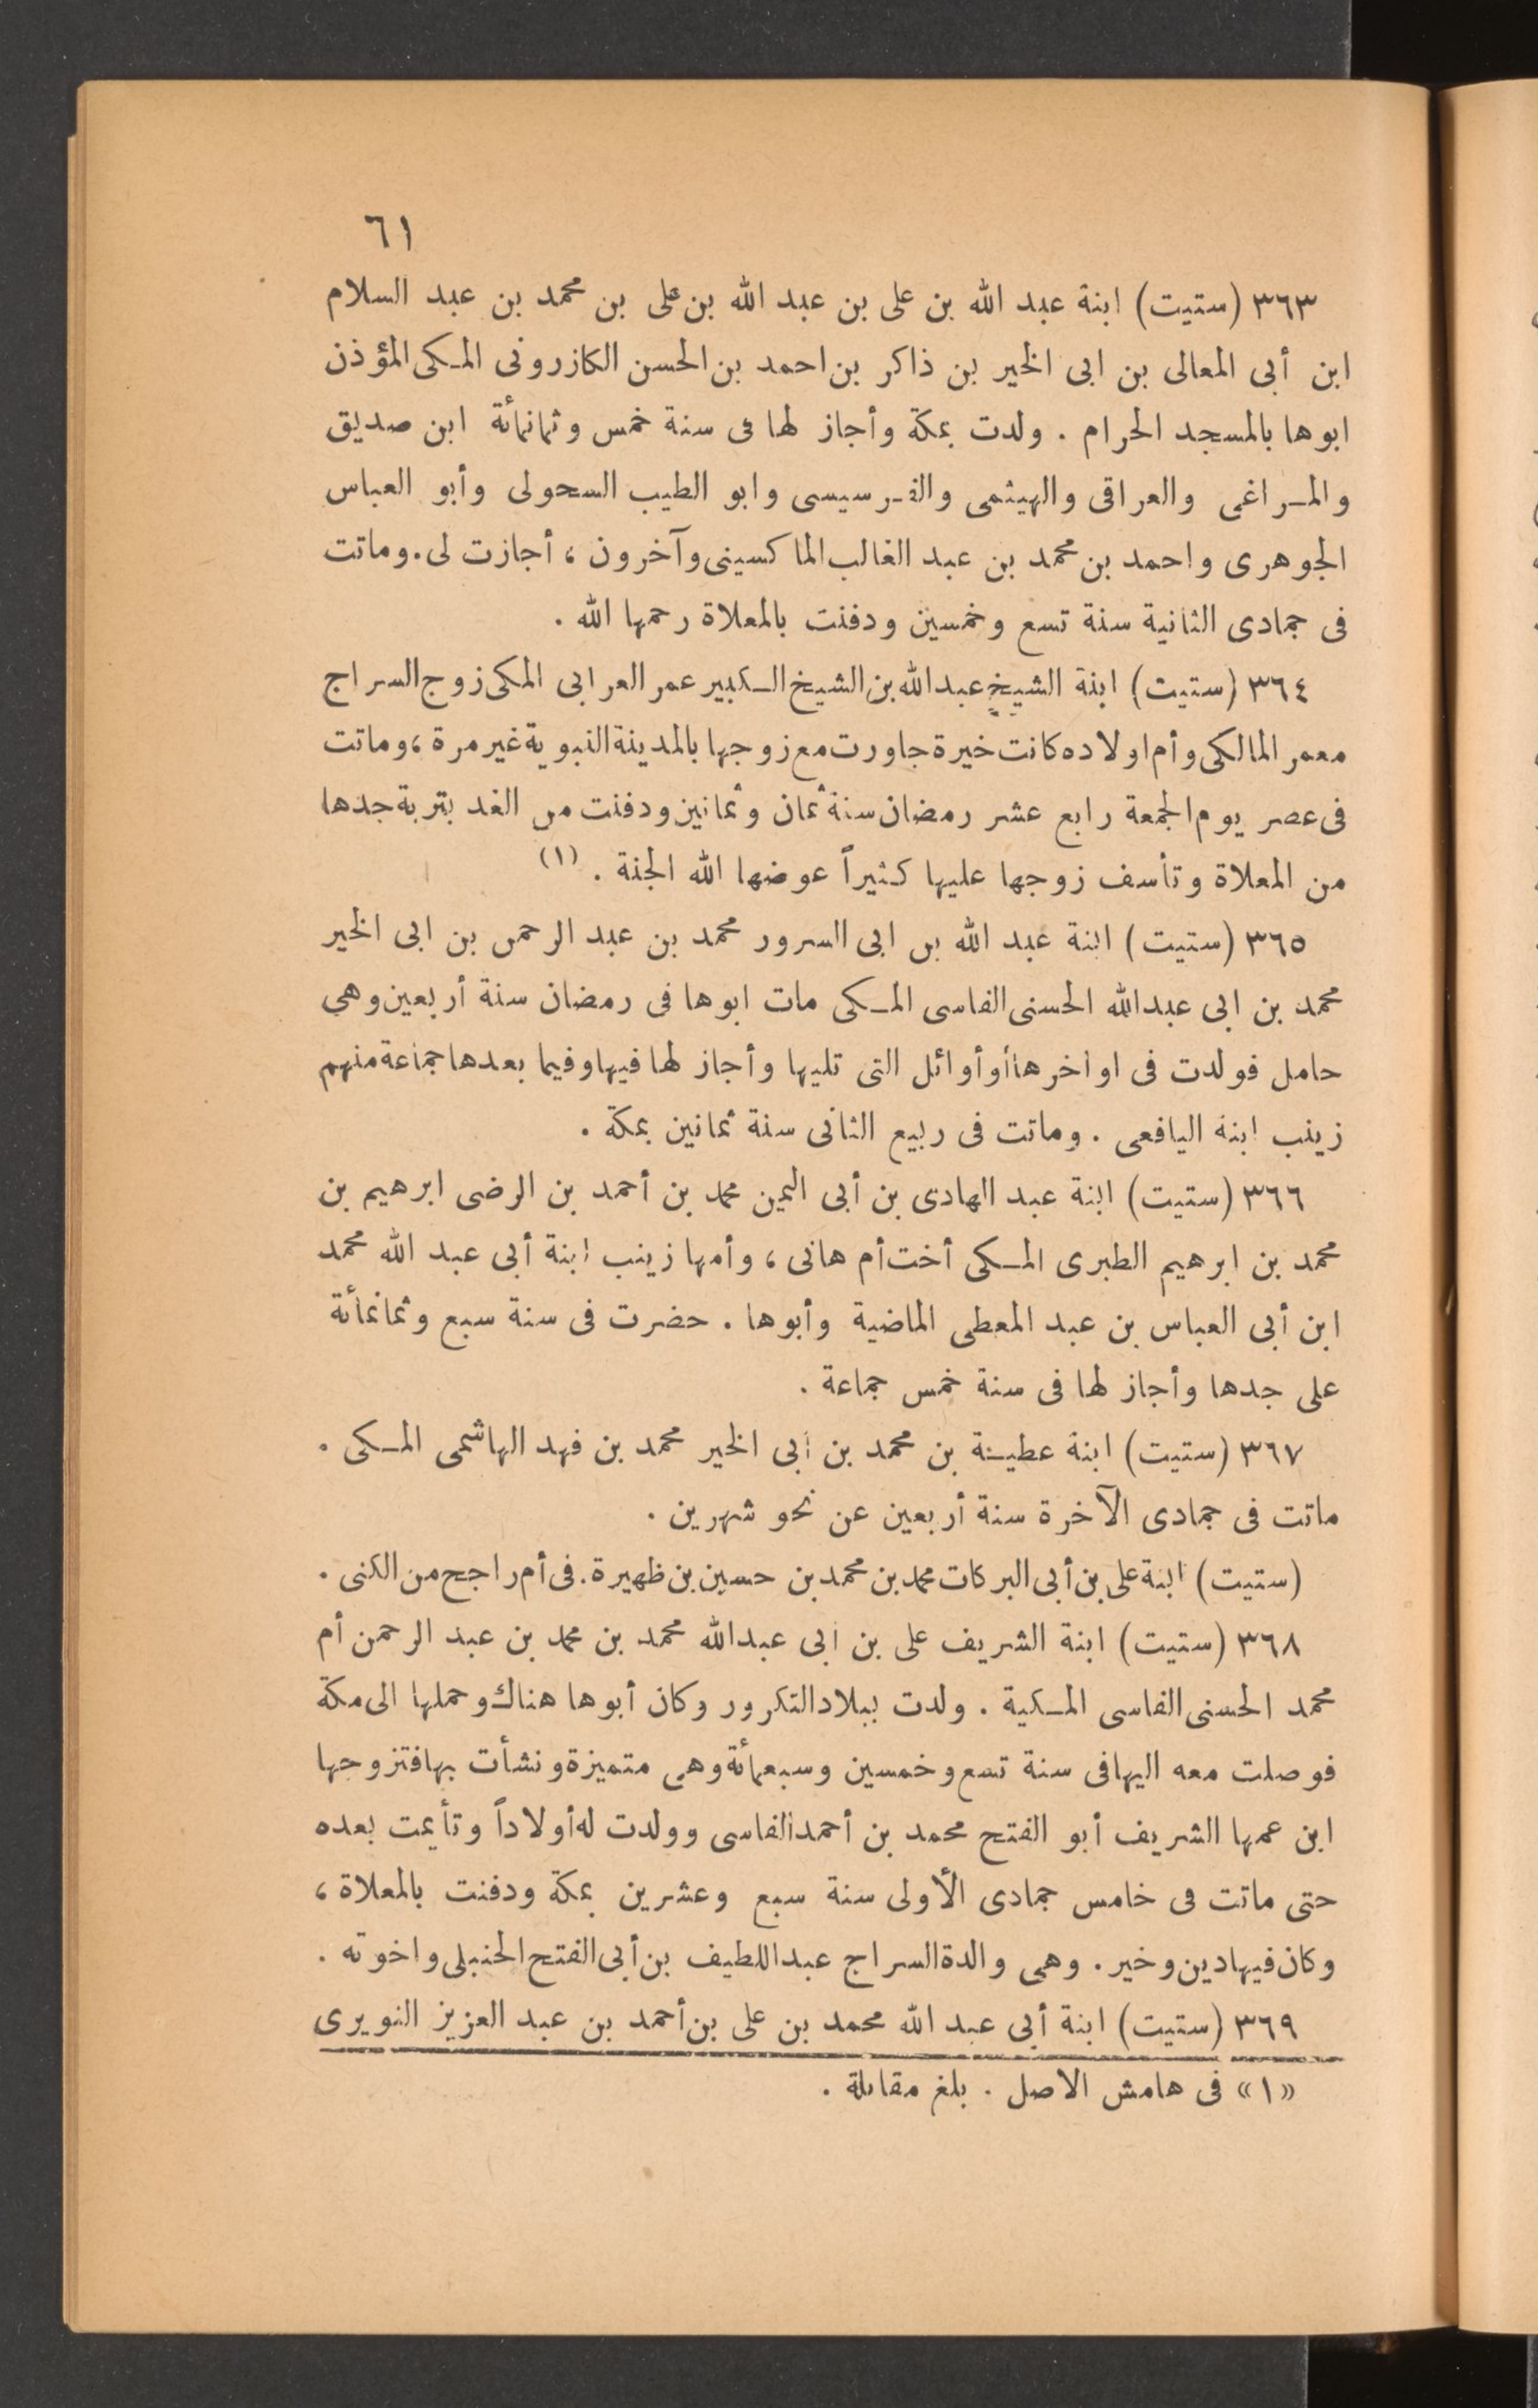 ٦١
٣٦٣ (ستيت) ابنة عبد الله بن على بن عبد الله بن على بن محمد بن عبد السلام
ابن أبى المعالى بن ابى الخير بن ذاكر بن احمد بن الحسن الكازرونى المكى المؤذن
ابوها بالمسجد الحرام . ولدت بمكة وأجاز لها فى سنة خمس وثمانمائة ابن صديق
والمراغى والعراقى والهيثمى والفرسيسى وابو الطيب السحولى وأبو العباس
الجوهرى واحمد بن محمد بن عبد الغالب الماكسينى وآخرون ، أجازت لى . وماتت
فى جمادى الثانية سنة تسع وخمسين ودفنت بالمعلاة رحمها الله .
٣٦٤ (ستيت) ابنة الشيخ عبد الله بن الشيخ الكبير عمر العرابى المكى زوج السراج
معمر المالكى وأم اولاده كانت خيرة جاورت مع زوجها بالمدينة النبوية غير مرة ، وماتت
فى عصر يوم الجمعة رابع عشر رمضان سنة ثمان وثمانين ودفنت من الغد بتربة جدها
من المعلاة وتأسف زوجها عليها كثيراً عوضها الله الجنة . (١)
٣٦٥ (ستيت) ابنة عبد الله بن ابى السرور محمد بن عبد الرحمن بن ابى الخير
محمد بن ابى عبد الله الحسنى الفاسى المكى مات ابوها فى رمضان سنة أربعين وهى
حامل فولدت فى اواخرها أو أوائل التى تليها وأجاز لها فيها وفيما بعدها جماعة منهم
زينب ابنة اليافعى . وماتت فى ربيع الثانى سنة ثمانين بمكة .
٣٦٦ (ستيت) ابنة عبد الهادى بن أبى اليمن محمد بن أحمد بن الرضى ابرهيم بن
محمد بن ابرهيم الطبرى المكى أخت أم هانى ، وأمها زينب ابنة أبى عبد الله محمد
ابن أبى العباس بن عبد المعطى الماضية وأبوها . حضرت فى سنة سبع وثمانمائة
على جدها وأجاز لها فى سنة خمس جماعة .
٣٦٧ (ستيت) ابنة عطية بن محمد بن أبى الخير محمد بن فهد الهاشمى المكى .
ماتت فى جمادى الآخرة سنة أربعين عن نحو شهرين .
(ستيت) ابنة على بن أبى البركات محمد بن محمد بن حسين بن ظهيرة . فى أم راجح من الكنى .
٣٦٨ (ستيت) ابنة الشريف على بن ابى عبد الله محمد بن محمد بن عبد الرحمن أم
محمد الحسنى الفاسى المكية . ولدت ببلاد التكرور وكان أبوها هناك وحملها الى مكة
فوصلت معه اليها فى سنة تسع وخمسين وسبعمائة وهى متميزة ونشأت بها فتزوجها
ابن عمها الشريف أبو الفتح محمد بن أحمد الفاسى وولدت له أولاداً وتأيمت بعده
حتى ماتت فى خامس جمادى الأولى سنة سبع وعشرين بمكة ودفنت بالمعلاة ،
وكان فيها دين وخير . وهى والدة السراج عبد اللطيف بن أبى الفتح الحنبلى واخوته .
٣٦٩ (ستيت) ابنة أبى عبد الله محمد بن على بن أحمد بن عبد العزيز النويرى
«١» فى هامش الاصل . بلغ مقابلة .